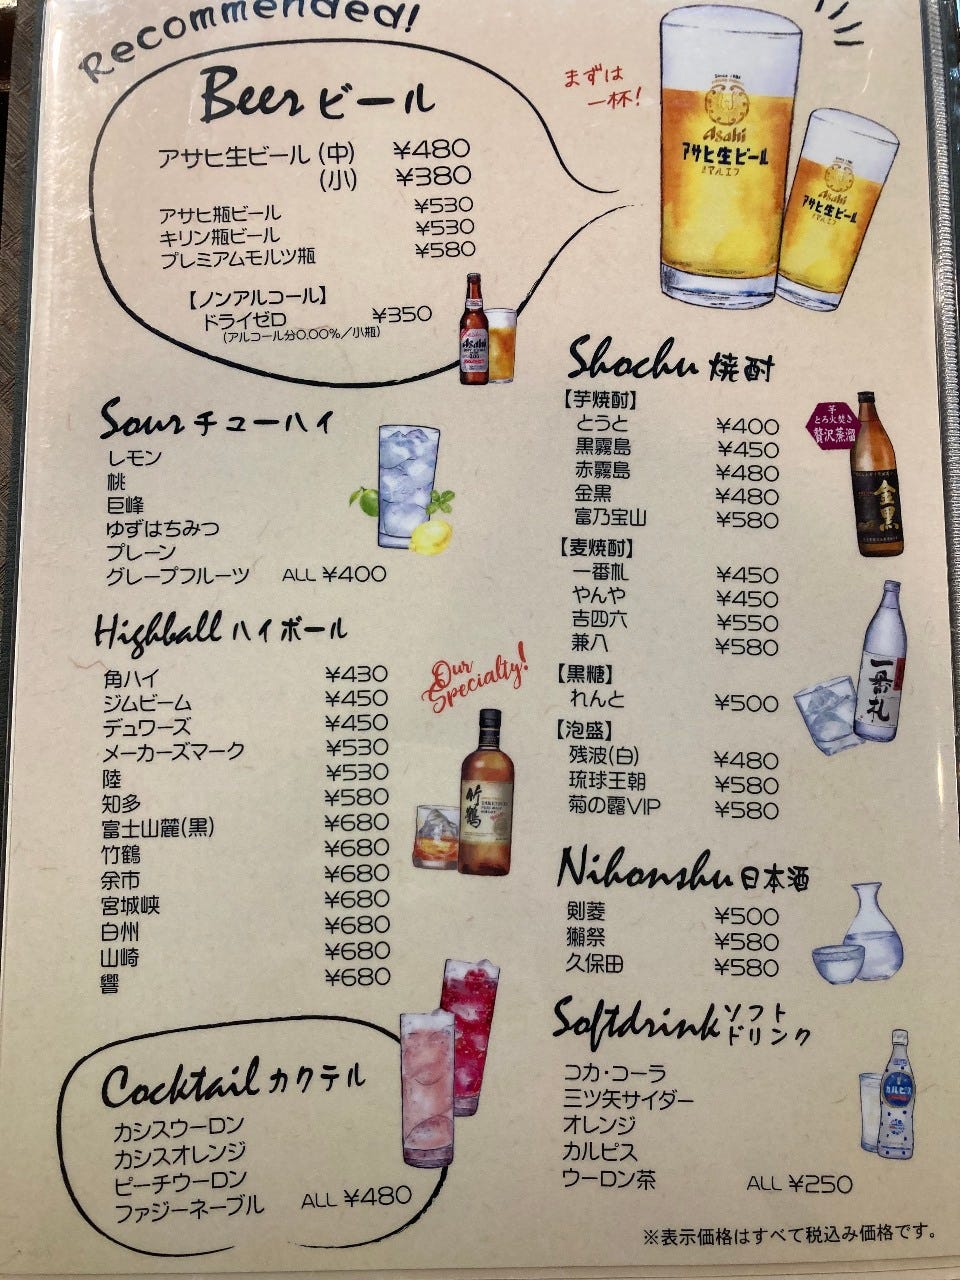 Recommended!
Beer ビール
アサヒ生ビール (中) ¥480
(小) ¥380
アサヒ瓶ビール ¥530
キリン瓶ビール ¥530
プレミアムモルツ瓶 ¥580
【ノンアルコール】
ドライゼロ ¥350
(アルコール分0.00%/小瓶)
まずは
一杯!
Asahi
アサヒ生ビール
マルエフ
Asahi
アサヒ生ビール
マルエフ
Asahi
Sour チューハイ
レモン
桃
巨峰
ゆずはちみつ
プレーン
グレープフルーツ ALL ¥400
Highball ハイボール
角ハイ ¥430
ジムビーム ¥450
デュワーズ ¥450
メーカーズマーク ¥530
陸 ¥530
知多 ¥580
富士山麓(黒) ¥680
竹鶴 ¥680
余市 ¥680
宮城峡 ¥680
白州 ¥680
山崎 ¥680
響 ¥680
Our
Specialty!
竹鶴
Cocktail カクテル
カシスウーロン
カシスオレンジ
ピーチウーロン
ファジーネーブル ALL ¥480
Shochu 焼酎
【芋焼酎】
とうと ¥400
黒霧島 ¥450
赤霧島 ¥480
金黒 ¥480
富乃宝山 ¥580
芋
とろ火焚き
贅沢蒸溜
金黒
【麦焼酎】
一番札 ¥450
やんや ¥450
吉四六 ¥550
兼八 ¥580
一番札
【黒糖】
れんと ¥500
【泡盛】
残波(白) ¥480
琉球王朝 ¥580
菊の露VIP ¥580
Nihonshu 日本酒
剣菱 ¥500
獺祭 ¥580
久保田 ¥580
Softdrink ソフト
ドリンク
コカ・コーラ
三ツ矢サイダー
オレンジ
カルピス
ウーロン茶 ALL ¥250
カルピス
※表示価格はすべて税込み価格です。